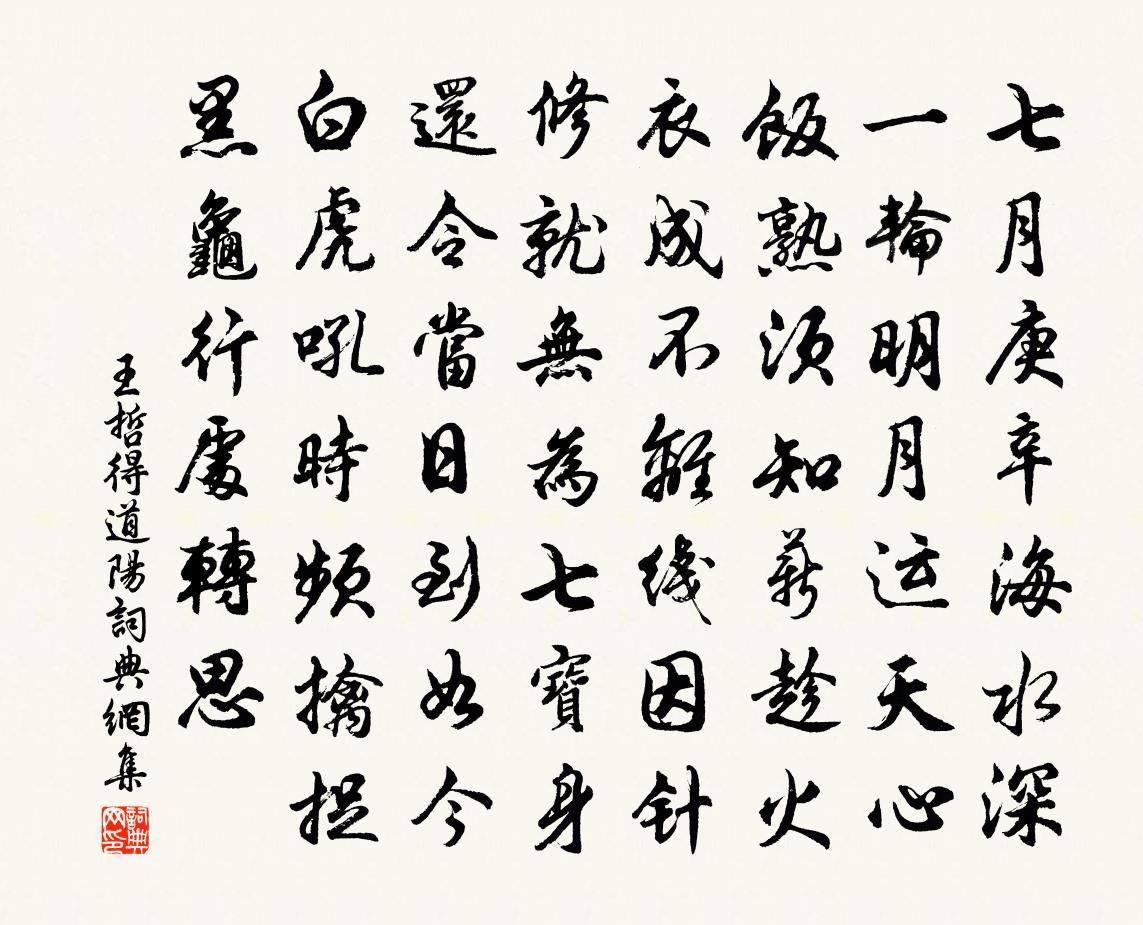 七月庚辛海水深
一輪明月运天心
飯熟須知薪趁火
衣成不離线因针
修就無為七寶身
還令當日到如今
白虎吼時頻擒捉
黑龜行處轉思
王哲得道陽詞典網集
詞典网印